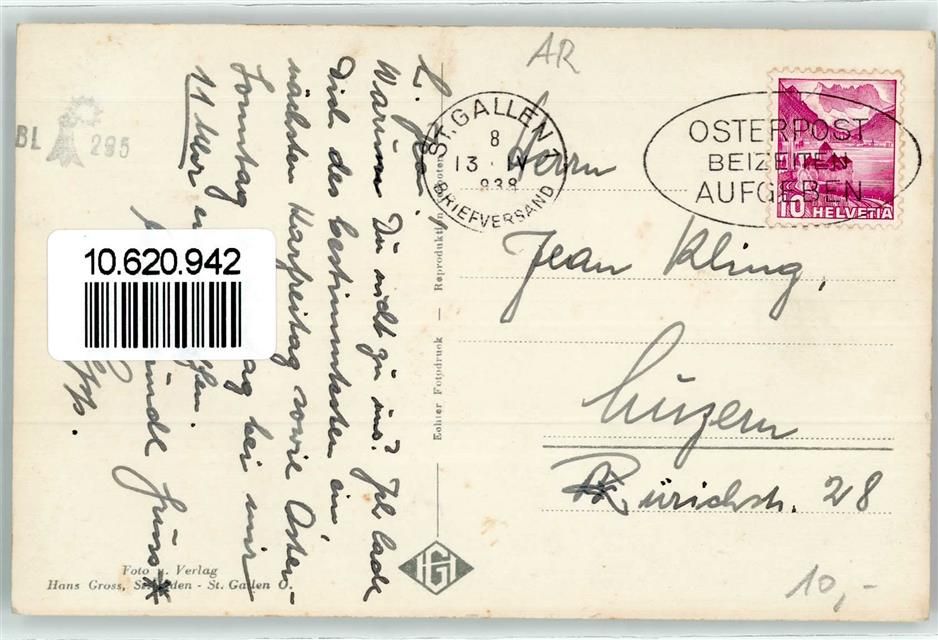 AR
BL 295
ST. GALLEN 1
8
13 · IV
938
BRIEFVERSAND
OSTERPOST
BEIZEITEN
AUFGEBEN
10 HELVETIA
Herrn
Jean Kling,
Luzern
Zürichstr. 28
L. Jean
Warum Du nicht zu uns? Ich lade
Dich des bestimmtesten ein
nächsten Karfreitag sowie Oster-
Sonntag bei mir
11 Uhr
10.620.942
Echter Fotodruck — Reproduktion verboten
Foto u. Verlag
Hans Gross, St. Fiden - St. Gallen O.
HG
10,-